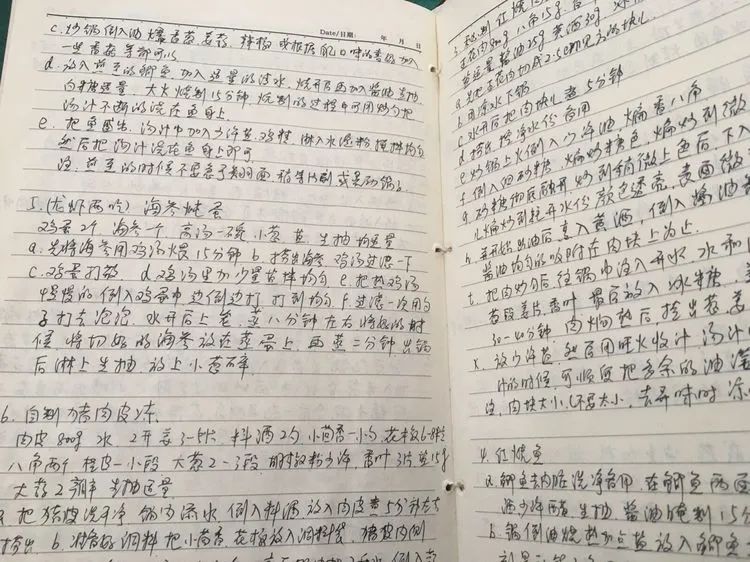 Date/日期:    年  月  日
c. 炒锅倒入油 爆香葱姜蒜 辣椒 或根据自己口味的喜好加入
一些香菇等都可以
d. 放入煎好的鲫鱼,加入适量的清水,烧开后再加入酱油 生抽
白糖适量,大火烧制15分钟,烧制的过程中可用炒勺把
汤汁不断的浇在鱼身上
e. 把鱼盛出,汤汁中加入少许盐,鸡精,淋入水淀粉 搅拌均匀
然后把汤汁浇在鱼身上即可
注,煎鱼的时候不要急于翻面
5. (龙虾两吃) 海参炖蛋
鸡蛋2个 海参一个 高汤一碗 小葱 盐 生抽适量
a. 先将海参用鸡汤煨15分钟 b. 捞出海参 鸡汤过滤一下
c. 鸡蛋打散 d. 鸡汤里加少量盐拌均匀 e. 把热鸡汤
慢慢的倒入鸡蛋中 边倒边打 打到均匀 f. 过滤一次用勺
子打去泡沫,水开后上笼,蒸八分钟左右 将好的时
候 将切好的海参放在蒸蛋上,再蒸二分钟 出锅
后淋上生抽 放上小葱
6. 自制猪肉皮冻
肉皮800g 水 2斤 姜3-5片 料酒2勺 小茴香一小勺 花椒6-8粒
八角两个 桂皮一小段 大葱2-3段 胡椒粉少许 香叶3片 盐15g
大蒜2瓣 生抽适量
a. 把猪皮洗干净 锅内添水 倒入料酒 放入肉皮煮5分钟左右
捞出 b. 准备好调料 把小茴香,花椒放入调料袋,猪皮内侧
3.
五花肉800g 八角15g
盐适量 酱油25g 黄酒50g
a. 先把五花肉切成2.5cm见方的块儿
b. 用凉水下锅
c. 水开后把肉块儿煮5分钟
d. 捞出控净水份 备用
e. 炒锅上火倒入少许油 煸香八角
f. 倒入白砂糖 煸炒糖色 煸炒到微
g. 砂糖彻底融开 炒到稍微上色后,下入
儿煸炒到起开水份 颜色透亮,表面微
h. 并开始出油后 烹入黄酒,倒入酱油
酱油均匀的吸附在肉块上为止
i. 把肉炒匀后 往锅中注入开水 水和
葱段姜片,香叶 最后放入冰糖
30-40分钟 肉焖熟后,捞出葱姜
k. 放少许盐 然后用旺火收汁,汤汁
汁的时候,可顺便把多余的油
注,肉块大小,不要太小,去异味时
4. 红烧鱼
a. 鲫鱼去内脏洗净备用,在鲫鱼两面
酒少许醋 生抽 酱油腌制15分
b. 锅倒油烧热加点盐放入鲫鱼